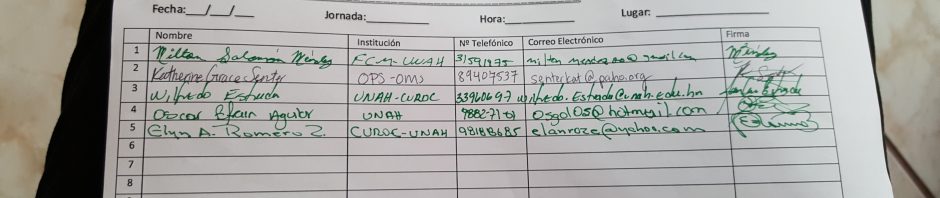 Fecha:__/__/__ Jornada:__________ Hora:__________ Lugar: __________
Nombre Institución Nº Telefónico Correo Electrónico Firma
1 Milton Salomón FCM-UNAH
2 Katherine Grace Senter OPS-OMS 89407537 senterkat@paho.org
3 Wilfredo Estrada UNAH-CUROC 33960697 wilfredo.Estrada@unah.edu.hn
4 Oscar Efrain Aguilar UNAH osgal05@hotmail.com
5 Elyn A. Romero Z. CUROC-UNAH elanroze@yahoo.com
6
7
8